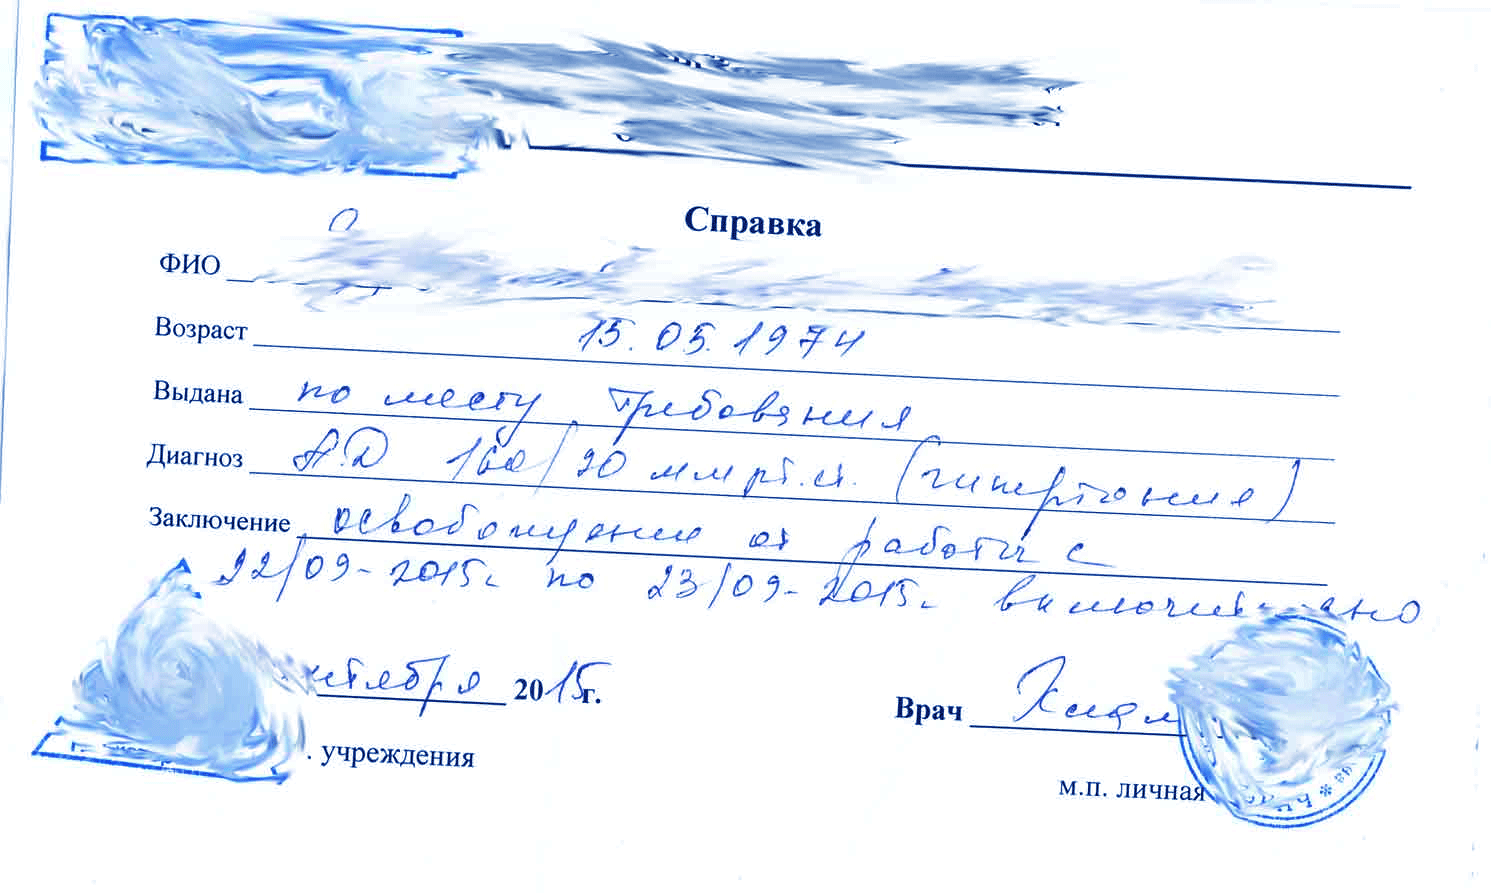 Справка
ФИО
Возраст 15.05.1974
Выдана по месту требования
Диагноз А.Д 160/90 мм рт.ст. (гипертония)
Заключение освобождение от работы с
22/09-2015г по 23/09-2015г. включительно
20 15 г. Врач
. учреждения
м.п. личная